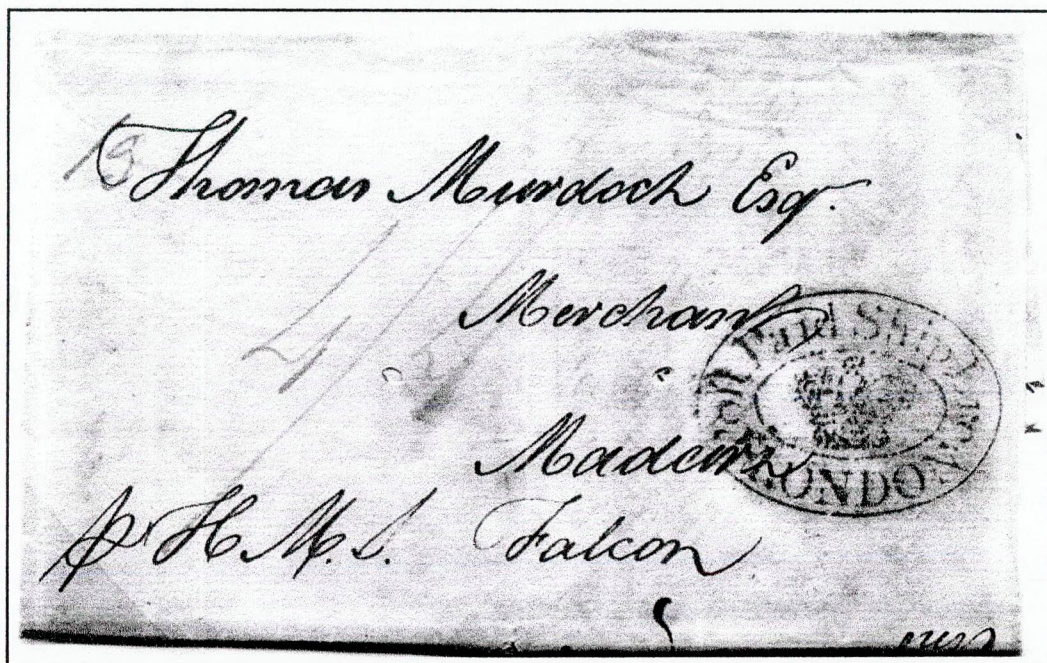 Thomas Murdoch Esqr.
Merchant
Madeira
pr H.M.S. Falcon
Paid Ship Letter
LONDON